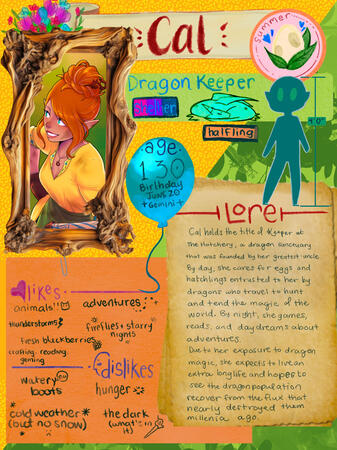 Cal
Summer
Dragon Keeper
halfling
4'0"
age
130
Birthday
June 20
Gemini
Lore
Cal holds the title of Keeper at
the Hatchery, a dragon sanctuary
that was founded by her greatest uncle.
By day, she cares for eggs and
hatchlings entrusted to her by
dragons who travel to hunt
and tend the magic of the
world. By night, she games,
reads, and daydreams about
adventures.
Due to her exposure to dragon
magic, she expects to live an
extra long life and hopes to
see the dragon population
recover from the flux that
nearly destroyed them
millenia ago.
likes
animals!!
adventures
thunderstorms
fireflies + starry
nights
fresh blackberries
crafting, reading,
gaming
dislikes
watery
boots
hunger
cold weather*
(but no snow)
the dark
(what's in
it)